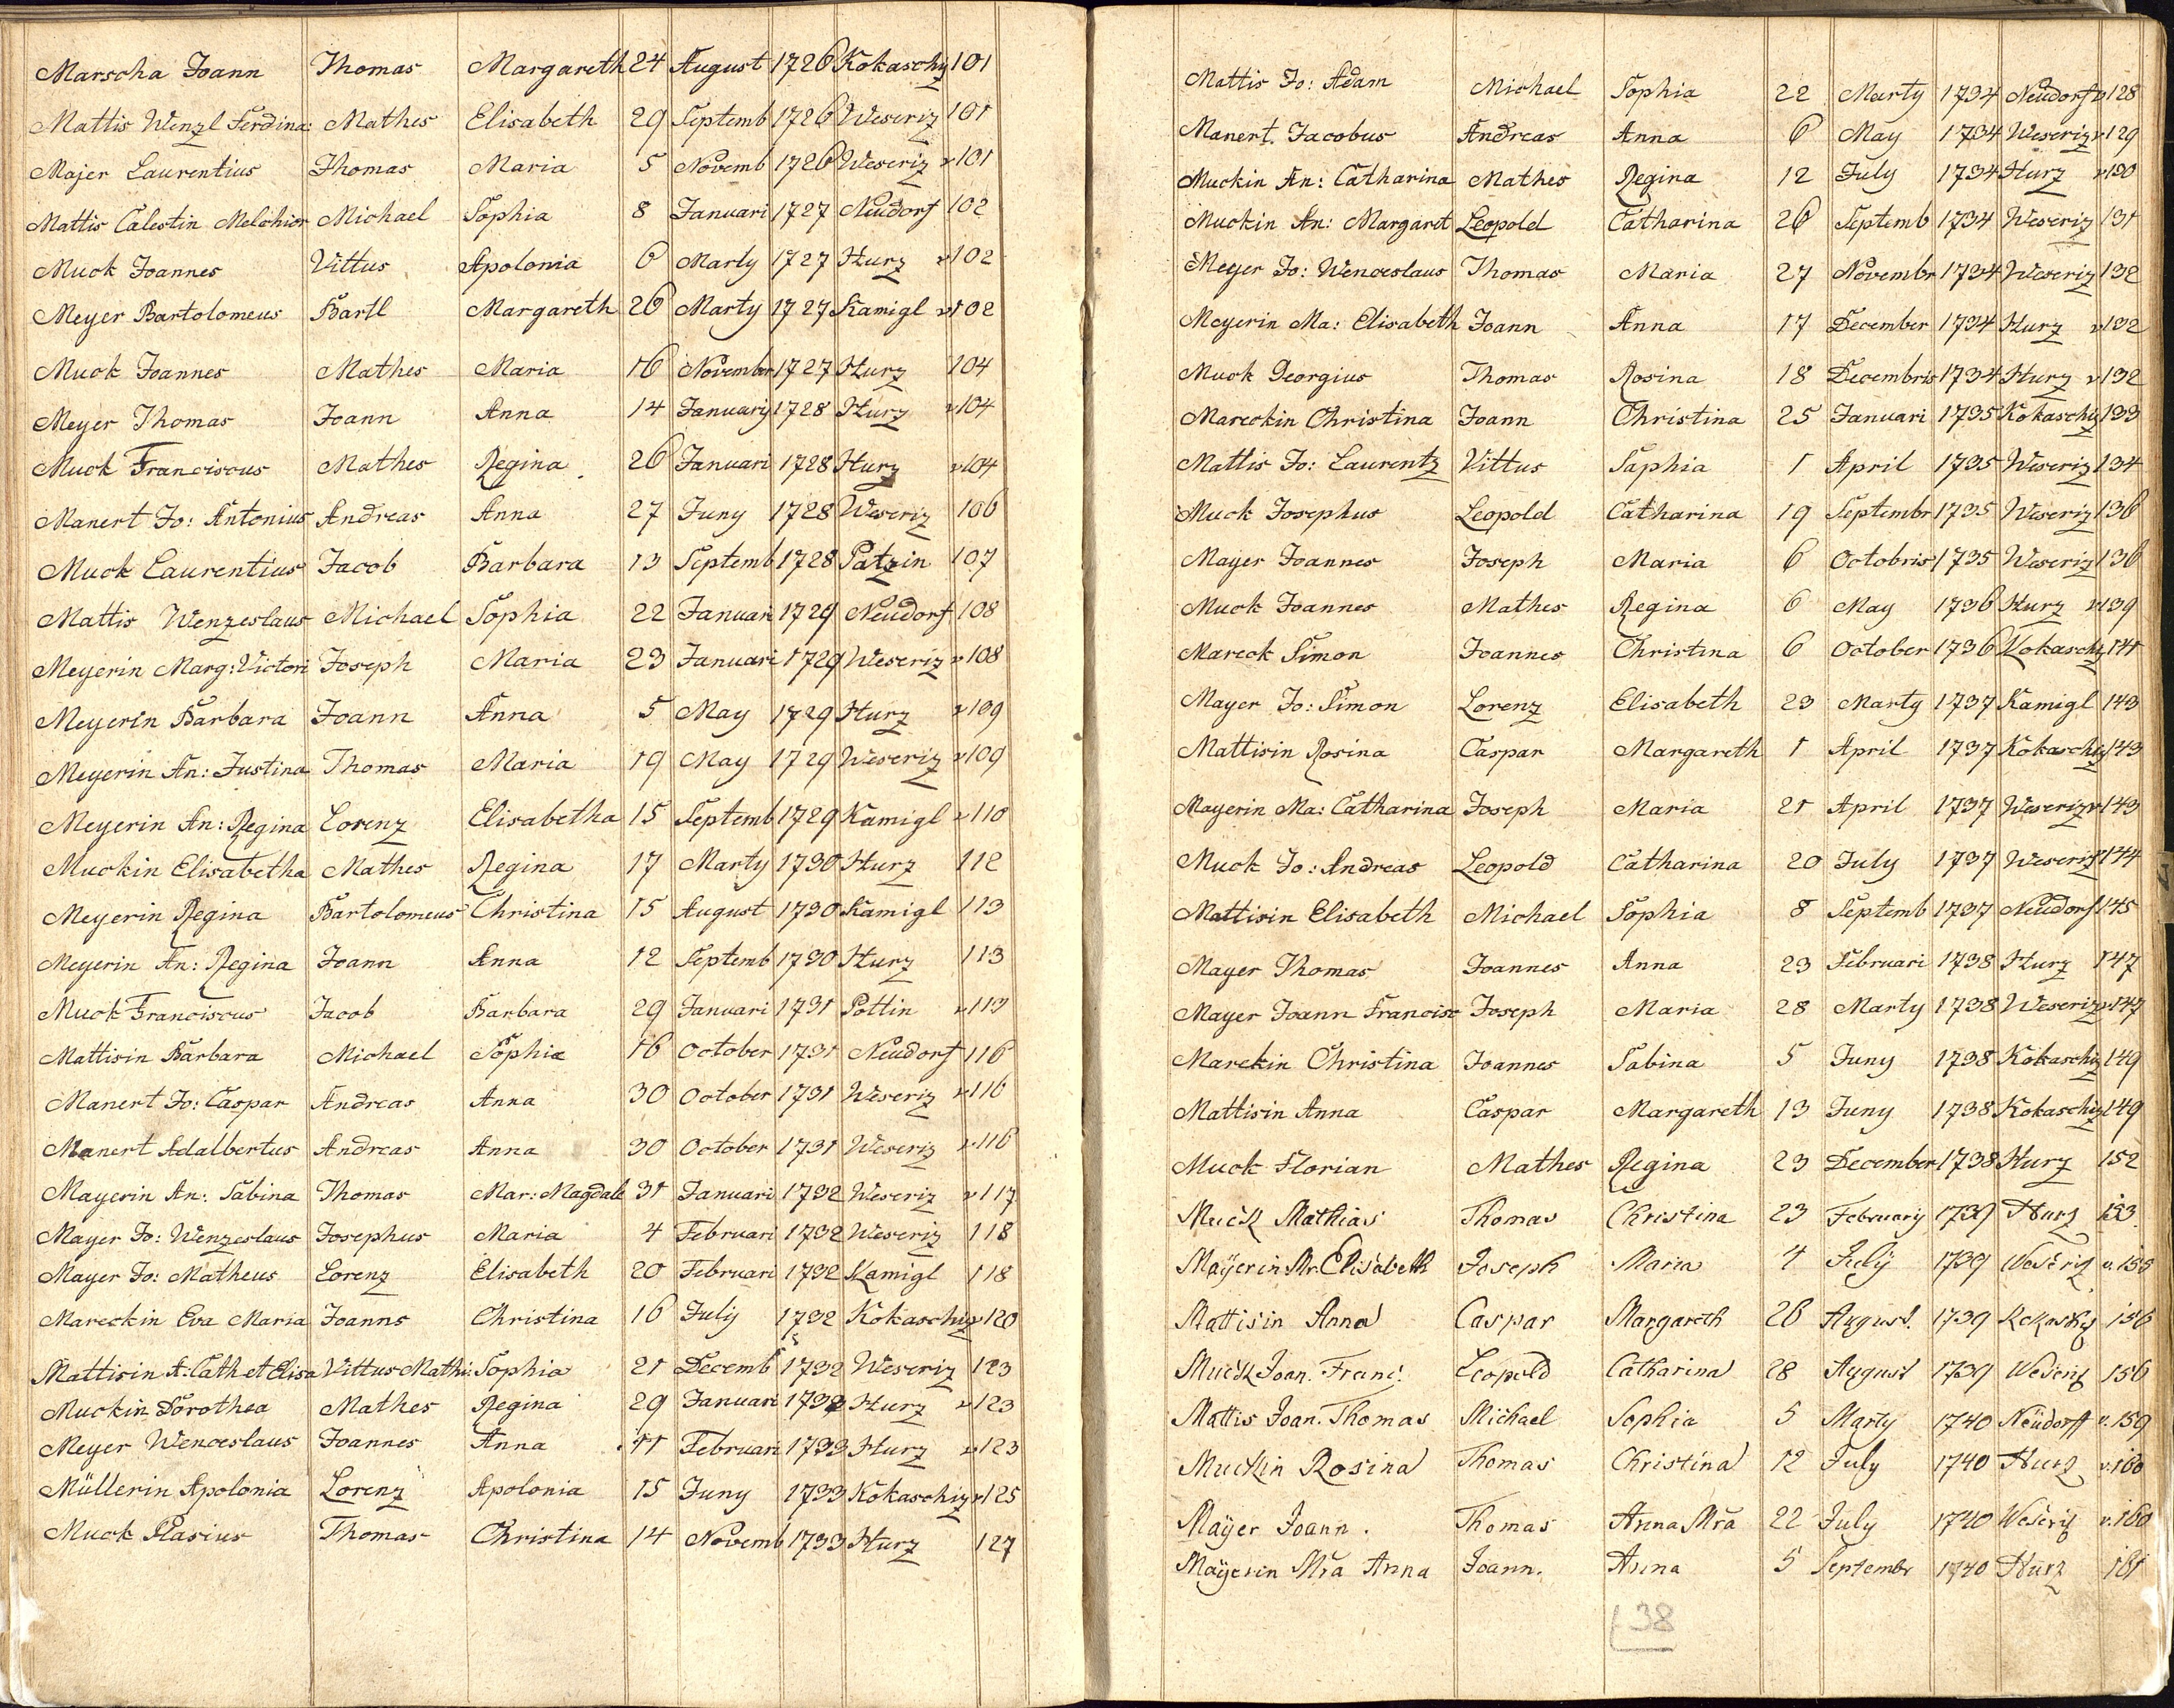 Marscha Joann Thomas Margareth 24 August 1726 Kokaschiz 101
Mattis Wenzl Ferdina: Mathes Elisabeth 29 Septemb 1726 Weseriz 101
Majer Laurentius Thomas Maria 5 Novemb 1726 Weseriz v 101
Mattis Calestin Melchior Michael Sophia 8 Januari 1727 Neudorf 102
Muck Joannes Vittus Apolonia 6 Marty 1727 Hurz v 102
Meyer Bartolomeus Bartl Margareth 26 Marty 1727 Kamigl v 102
Muck Joannes Mathes Maria 16 November 1727 Hurz 104
Meyer Thomas Joann Anna 14 January 1728 Hurz v 104
Muck Franciscus Mathes Regina 26 Januari 1728 Hurz v 104
Manert Jo: Antonius Andreas Anna 27 Juny 1728 Weseriz 106
Muck Laurentius Jacob Barbara 13 Septemb 1728 Potzin 107
Mattis Wenzeslaus Michael Sophia 22 Januari 1729 Neudorf 108
Meyerin Marg: Victori Joseph Maria 23 Januari 1729 Weseriz v 108
Meyerin Barbara Joann Anna 5 May 1729 Hurz v 109
Meyerin An: Justina Thomas Maria 19 May 1729 Weseriz v 109
Meyerin An: Regina Lorenz Elisabetha 15 Septemb 1729 Kamigl v 110
Muckin Elisabetha Mathes Regina 17 Marty 1730 Hurz 112
Meyerin Regina Bartolomeus Christina 15 August 1730 Kamigl 113
Meyerin An: Regina Joann Anna 12 Septemb 1730 Hurz 113
Muck Franciscus Jacob Barbara 29 Januari 1731 Pottin v 113
Mattisin Barbara Michael Sophia 16 October 1731 Neudorf 116
Manert Jo: Caspar Andreas Anna 30 October 1731 Weseriz v 116
Manert Adalbertus Andreas Anna 30 October 1731 Weseriz v 116
Mayerin An: Sabina Thomas Mar: Magdale 31 Januari 1732 Weseriz v 117
Mayer Jo: Wenzeslaus Josephus Maria 4 Februari 1732 Weseriz 118
Mayer Jo: Matheus Lorenz Elisabeth 20 Februari 1732 Kamigl 118
Mareckin Eva Maria Joanns Christina 16 July 1732 Kokaschiz v 120
Mattisin A: Cath et Elisa Vittus Mathi: Sophia 21 Decemb 1732 Weseriz 123
Muckin Dorothea Mathes Regina 29 Januari 1733 Hurz v 123
Meyer Wenceslaus Joannes Anna 11 Februari 1733 Hurz v 123
Müllerin Apolonia Lorenz Apolonia 15 Juny 1733 Kokaschiz v 125
Muck Blasius Thomas Christina 14 Novemb 1733 Hurz 127
Mattis Jo: Adam Michael Sophia 22 Marty 1734 Neudorf v 128
Manert Jacobus Andreas Anna 6 May 1734 Weseriz v 129
Muckin An: Catharina Mathes Regina 12 July 1734 Hurz v 130
Muckin An: Margaret Leopold Catharina 26 Septemb 1734 Weseriz 131
Meyer Jo: Wenceslaus Thomas Maria 27 Novembr 1734 Weseriz 132
Meyerin Ma: Elisabeth Joann Anna 17 December 1734 Hurz v 132
Muck Georgius Thomas Rosina 18 Decembris 1734 Hurz v 132
Mareckin Christina Joann Christina 25 Januari 1735 Kokaschiz 133
Mattis Jo: Laurentz Vittus Sophia 1 April 1735 Weseriz 134
Muck Josephus Leopold Catharina 19 Septembr 1735 Weseriz 136
Mayer Joannes Joseph Maria 6 Octobris 1735 Weseriz 136
Muck Joannes Mathes Regina 6 May 1736 Hurz v 139
Mareck Simon Joannes Christina 6 October 1736 Kokaschiz 141
Mayer Jo: Simon Lorenz Elisabeth 23 Marty 1737 Kamigl 143
Mattisin Rosina Caspar Margareth 1 April 1737 Kokaschiz 143
Mayerin Ma: Catharina Joseph Maria 21 April 1737 Weseriz v 143
Muck Jo: Andreas Leopold Catharina 20 July 1737 Weseriz v 144
Mattisin Elisabeth Michael Sophia 8 Septemb 1737 Neudorf 145
Mayer Thomas Joannes Anna 23 Februari 1738 Hurz 147
Mayer Joann Francisc Joseph Maria 28 Marty 1738 Weseriz v 147
Marekin Christina Joannes Sabina 5 Juny 1738 Kokaschiz 149
Mattisin Anna Caspar Margareth 13 Juny 1738 Kokaschiz 149
Muck Florian Mathes Regina 23 December 1738 Hurz 152
Muck Mathias Thomas Christina 23 February 1739 Hurz 153
Maÿerin Mr. Elisabeth Joseph Maria 4 July 1739 Weseriz v. 155
Mattisin Anna Caspar Margareth 26 August. 1739 Kokaschiz 156
Muck Joan. Franc: Leopold Catharina 28 August 1739 Weseriz 156
Mattis Joan. Thomas Michael Sophia 5 Marty 1740 Neüdorff v. 159
Muckin Rosina Thomas Christina 12 July 1740 Hurz v. 160
Maÿer Joann. Thomas Anna Mra 22 July 1740 Weseriz v. 160
Maÿerin Mra Anna Joann. Anna 5 Septembr 1740 Hurz 161
38